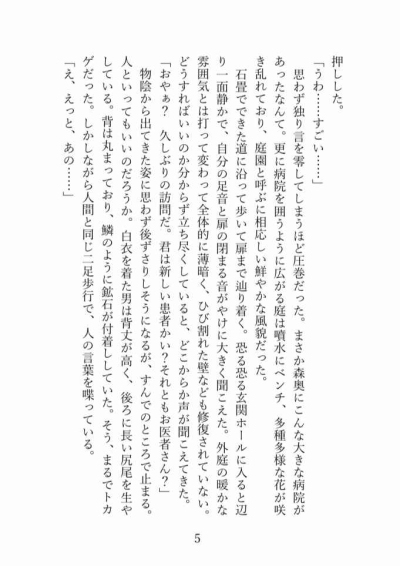 押しした。
「うわ……すごい……」
　思わず独り言を零してしまうほど圧巻だった。まさか森奥にこんな大きな病院が
あったなんて。更に病院を囲うように広がる庭は噴水にベンチ、多種多様な花が咲
き乱れており、庭園と呼ぶに相応しい鮮やかな風貌だった。
　石畳でできた道に沿って歩いて扉まで辿り着く。恐る恐る玄関ホールに入ると辺
り一面静かで、自分の足音と扉の閉まる音がやけに大きく聞こえた。外庭の暖かな
雰囲気とは打って変わって全体的に薄暗く、ひび割れた壁なども修復されていない。
どうすればいいのか分からず立ち尽くしていると、どこからか声が聞こえてきた。
「おやぁ？　久しぶりの訪問だ。君は新しい患者かい？それともお医者さん？」
　物陰から出てきた姿に思わず後ずさりしそうになるが、すんでのところで止まる。
人といってもいいのだろうか。白衣を着た男は背丈が高く、後ろに長い尻尾を生や
している。背は丸まっており、鱗のように鉱石が付着していた。そう、まるでトカ
ゲだった。しかしながら人間と同じ二足歩行で、人の言葉を喋っている。
「え、えっと、あの……」
5